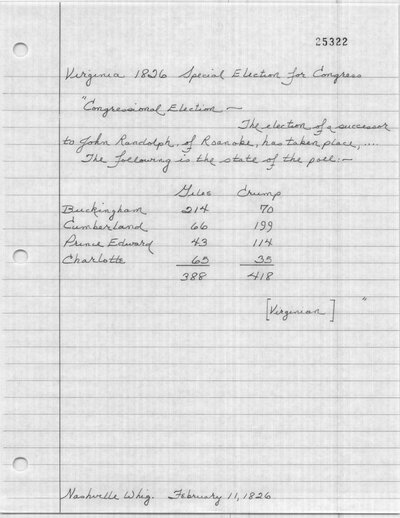 25322
Virginia 1826 Special Election for Congress
"Congressional Election —
The election of a successor
to John Randolph, of Roanoke, has taken place, ....
The following is the state of the poll:—
Giles Crump
Buckingham 214 70
Cumberland 66 199
Prince Edward 43 114
Charlotte 65 35
388 418
[Virginian] "
Nashville Whig. February 11, 1826